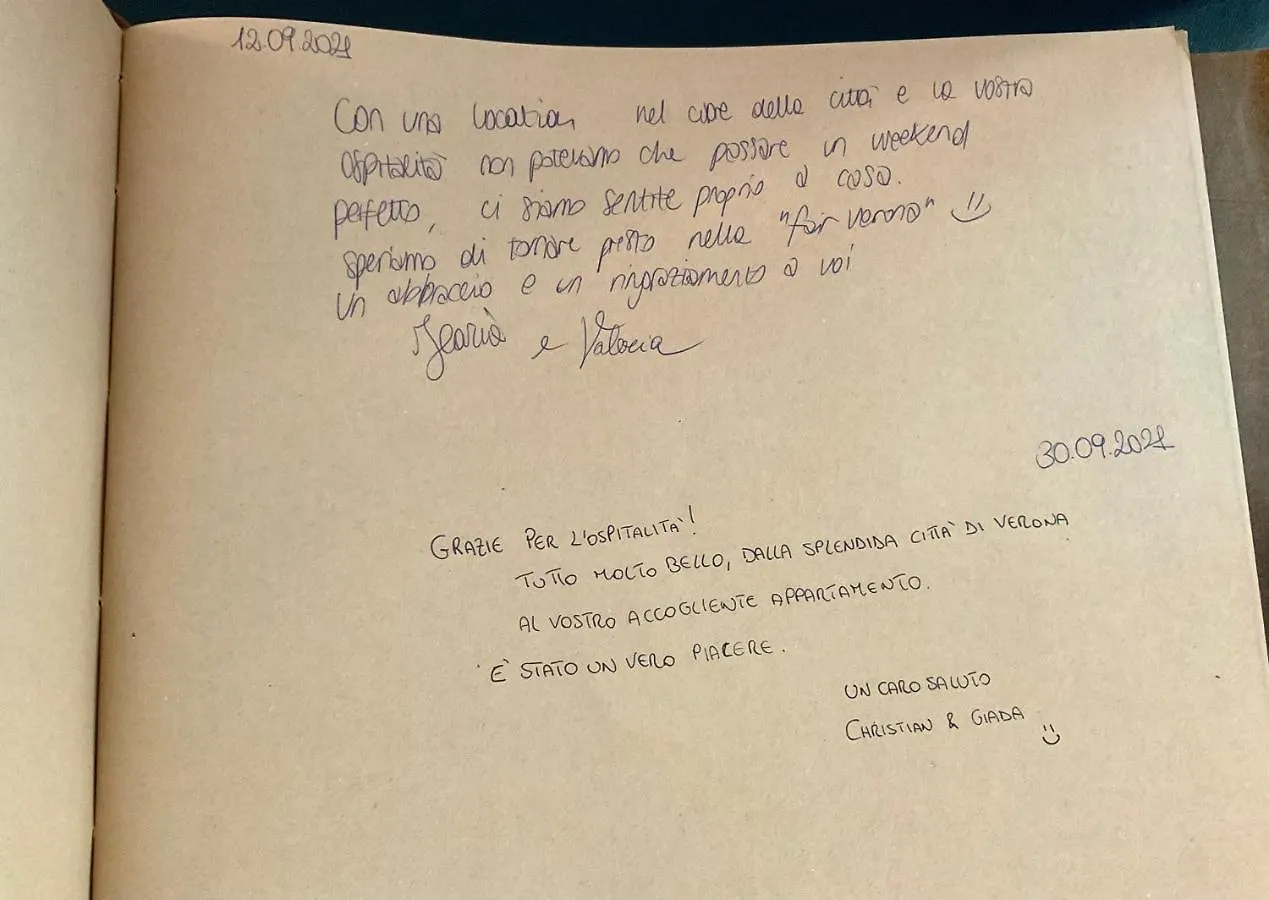 12.09.2021
Con una location nel cuore della città e la vostra
ospitalità non potevamo che passare un weekend
perfetto, ci siamo sentite proprio a casa.
speriamo di tornare presto nella "fair verona" :)
un abbraccio e un ringraziamento a voi
e Valeria
30.09.2021
GRAZIE PER L'OSPITALITA'!
TUTTO MOLTO BELLO, DALLA SPLENDIDA CITTA' DI VERONA
AL VOSTRO ACCOGLIENTE APPARTAMENTO.
E' STATO UN VERO PIACERE.
UN CARO SALUTO
CHRISTIAN & GIADA :)